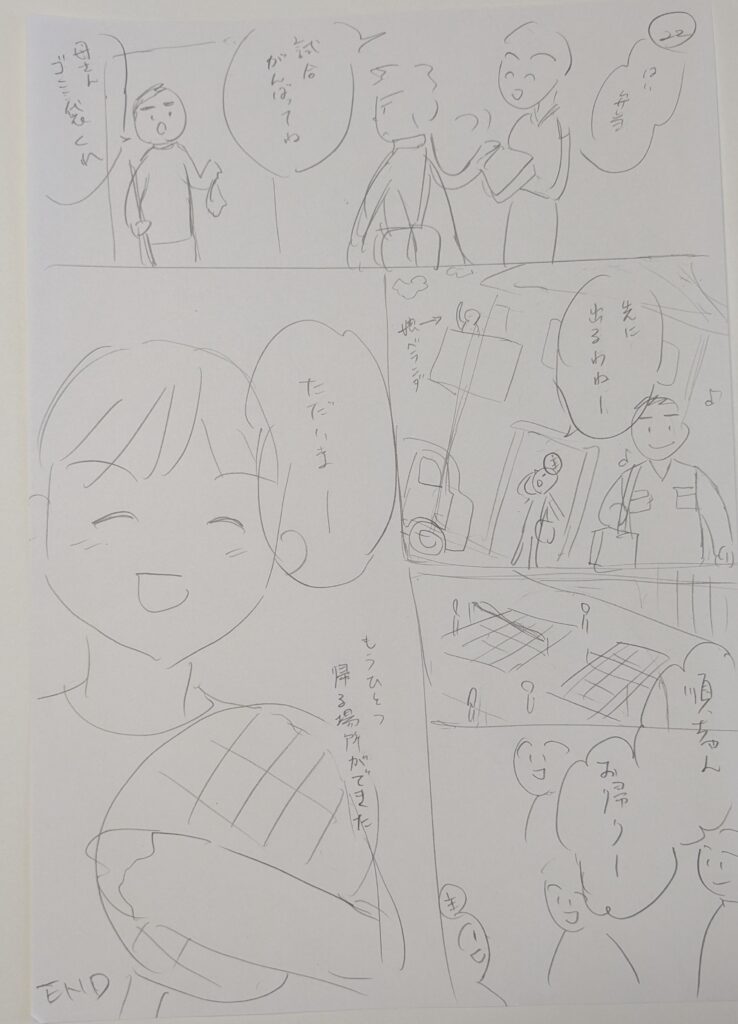 22
はい
弁当
試合
がんばってね
母さん
ゴミ袋くれ
先に
出るわねー
娘→
ベランダ
順ちゃん
お帰りー
ただいまー
もうひとつ
帰る場所ができた
END